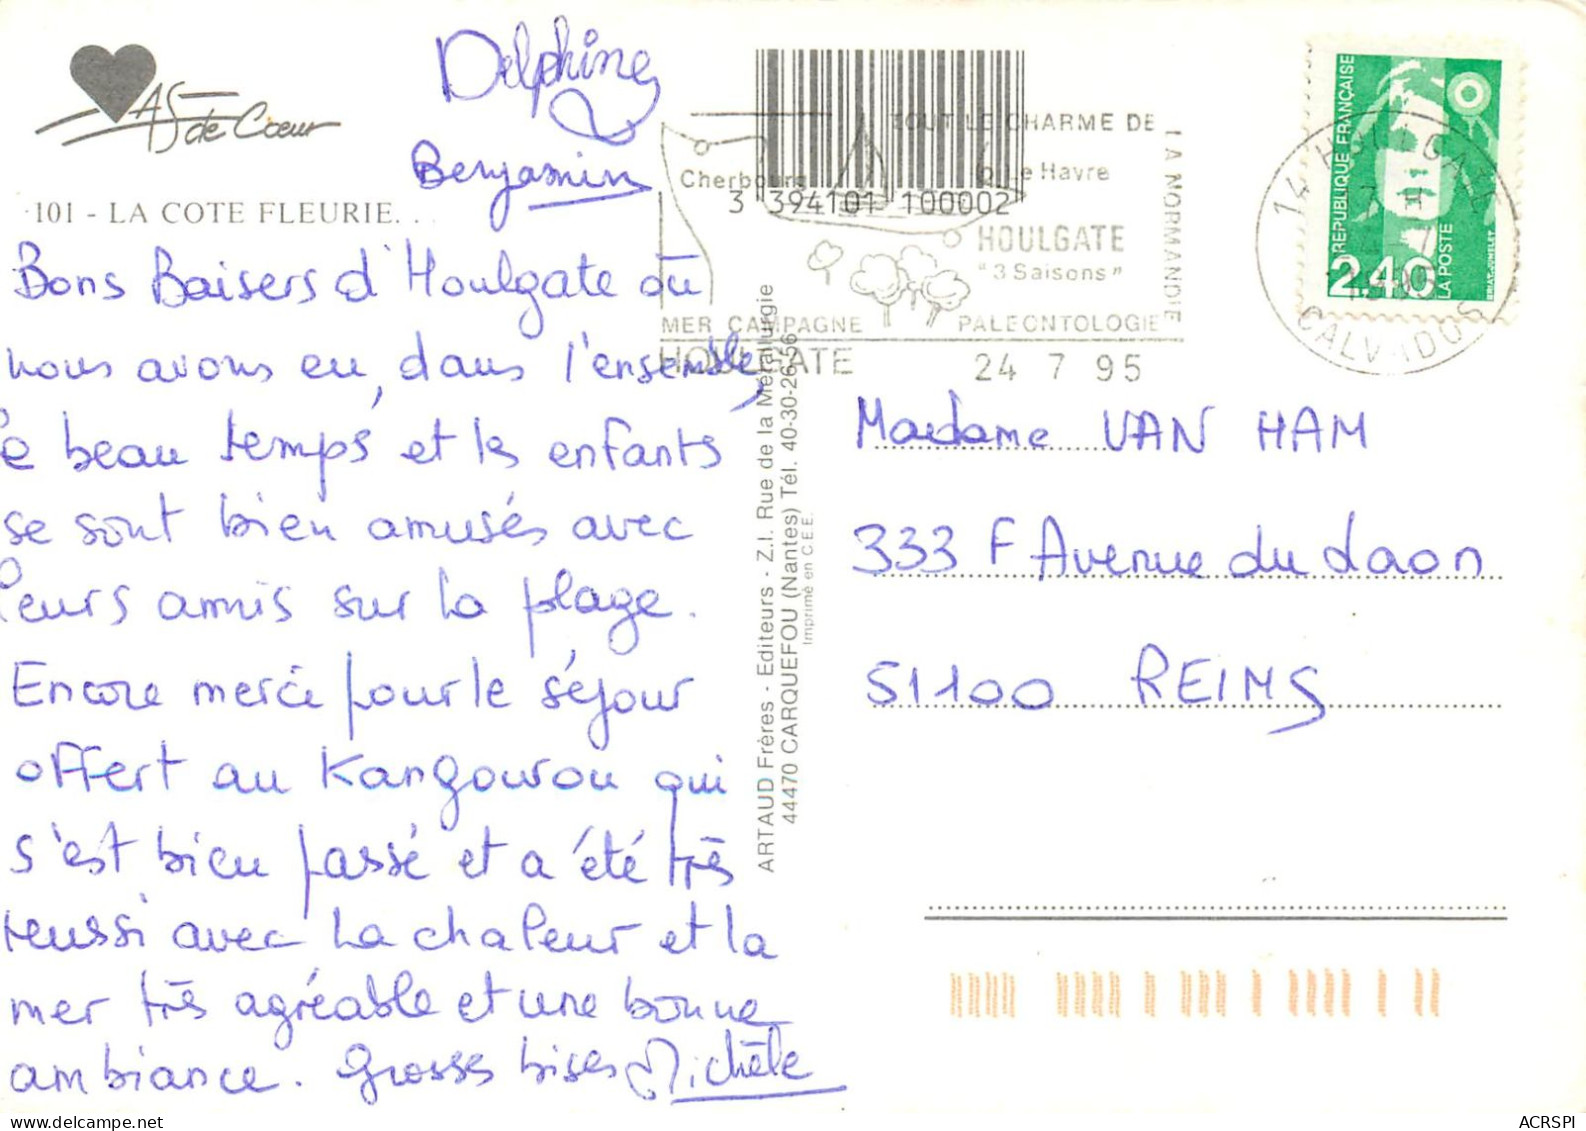 As de Cœur
Delphine
Benjamin
101 - LA COTE FLEURIE. . .
Bons Baisers d'Houlgate où
nous avons eu, dans l'ensemble,
le beau temps et les enfants
se sont bien amusés avec
leurs amis sur la plage.
Encore merci pour le séjour
offert au Kangourou qui
s'est bien passé et a été très
réussi avec la chaleur et la
mer très agréable et une bonne
ambiance. Grosses bises Michèle
3 394101 100002
TOUT LE CHARME DE
LA NORMANDIE
Cherbourg
Le Havre
HOULGATE
"3 Saisons"
MER CAMPAGNE PALEONTOLOGIE
HOULGATE 24 7 95
ARTAUD Frères - Editeurs - Z.I. Rue de la Métallurgie
44470 CARQUEFOU (Nantes) Tél. 40-30-26-56
Imprimé en C.E.E.
REPUBLIQUE FRANÇAISE
2.40
LA POSTE
BRIAT-JUMELET
14 HOULGATE
CALVADOS
Madame VAN HAM
333 F Avenue du Laon
51100 REIMS
ACRSPI